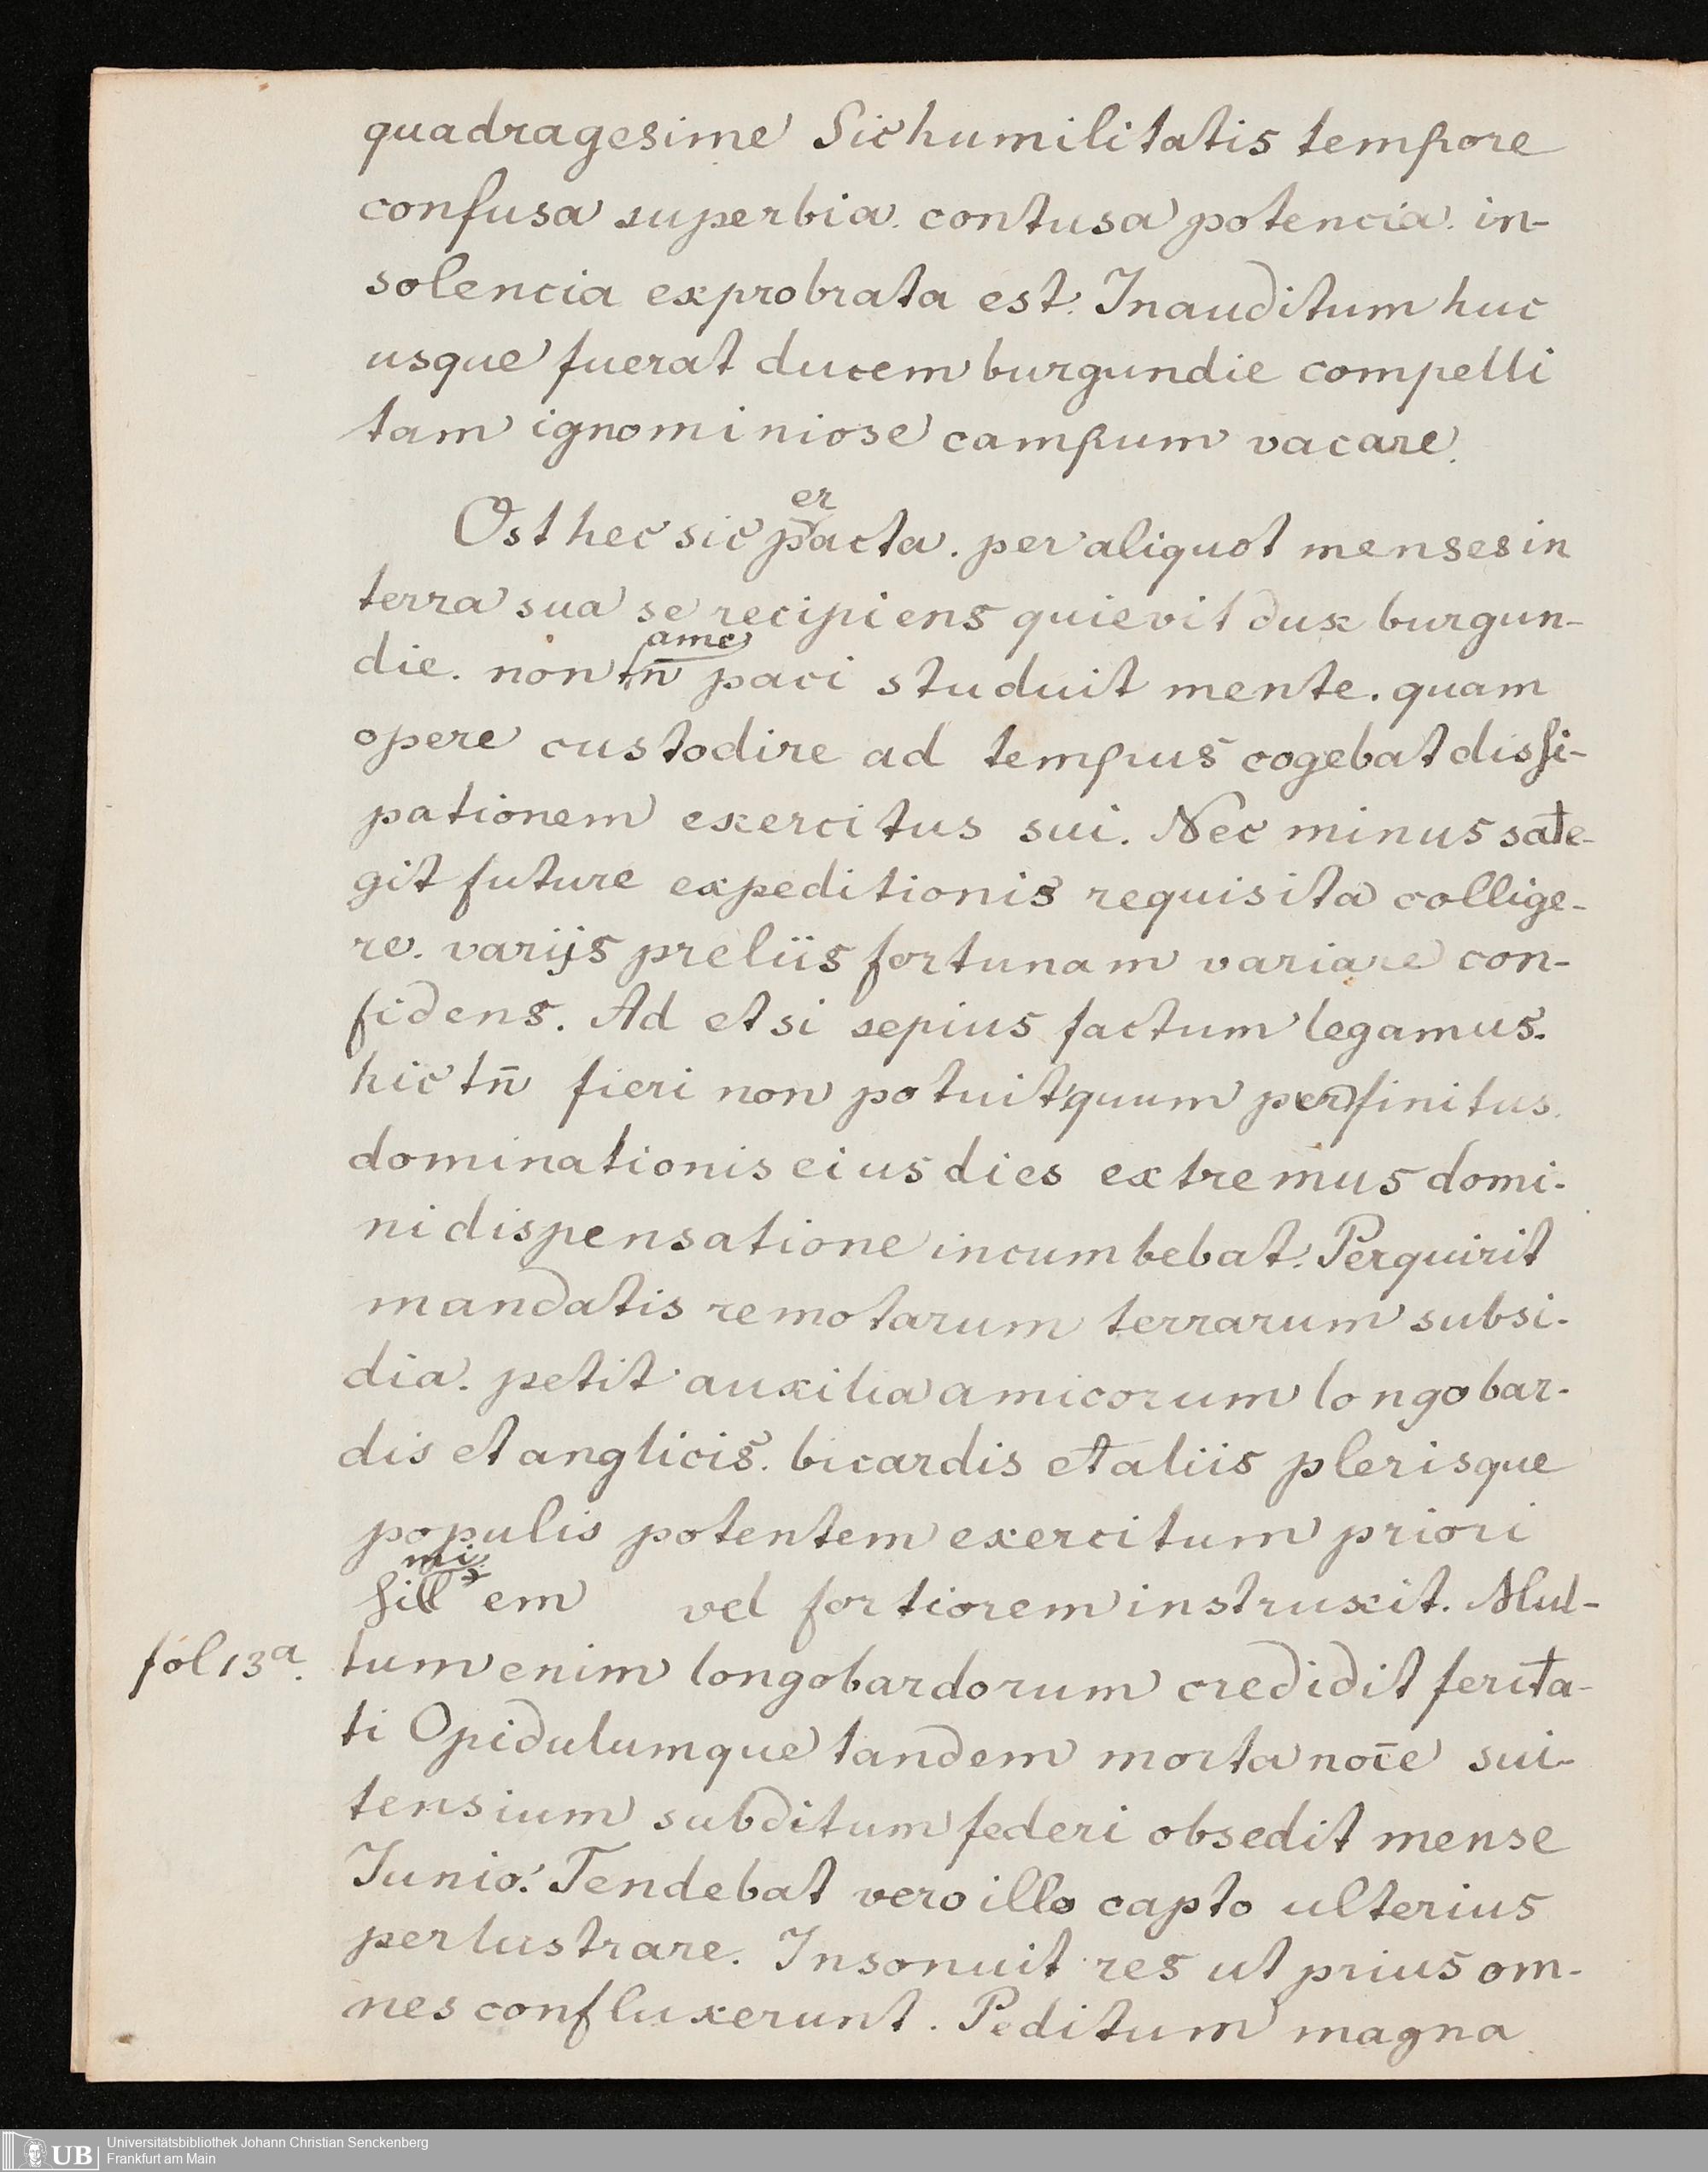 quadragesime Sic humilitatis tempore
confusa superbia. contusa potencia. in-
solencia exprobrata est. Inauditum huc
usque fuerat ducem burgundie compelli
tam ignominiose campum vacare.
er
Ost hec sic pacta. per aliquot menses in
terra sua se recipiens quievit dux burgun-
ame
die. non tn̄ paci studuit mente. quam
opere custodire ad tempus cogebat dissi-
pationem exercitus sui. Nec minus sate-
git future expeditionis requisita collige-
re. varijs preliis fortunam variare con-
fidens. Ad etsi sepius factum legamus.
hic tn̄ fieri non potuit quum perfinitus
dominationis eius dies extremus domi-
ni dispensatione incumbebat. Perquirit
mandatis remotarum terrarum subsi-
dia. petit auxilia amicorum longobar-
dis et anglicis. bicardis et aliis plerisque
populis potentem exercitum priori
mi
sill em vel fortiorem instruxit. Mul-
fol 13a. tum enim longobardorum credidit ferita-
ti Opidulumque tandem morta noīe sui-
tensium subditum federi obsedit mense
Junio. Tendebat vero illo capto ulterius
perlustrare. Insonuit res ut prius om-
nes confluxerunt. Peditum magna
UB Universitätsbibliothek Johann Christian Senckenberg
Frankfurt am Main